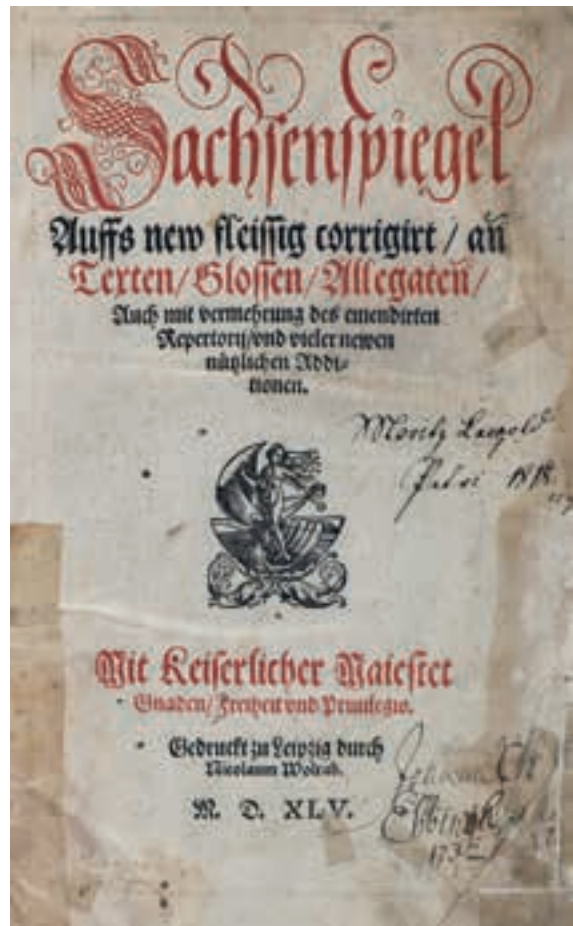 Sachsenspiegel
Auffs new fleissig corrigirt / an̄
Texten / Glossen / Allegaten̄ /
Auch mit vermehrung des emendirten
Repertorij / vnd vieler newen
nützlichen Addi=
tionen.
Moritz Leopold
Petri 1818.
Mit Keiserlicher Maiestet
Gnaden / Freiheit vnd Priuilegio.
Gedruckt zu Leipzig durch
Nicolaum Wolrab.
M. D. XLV.